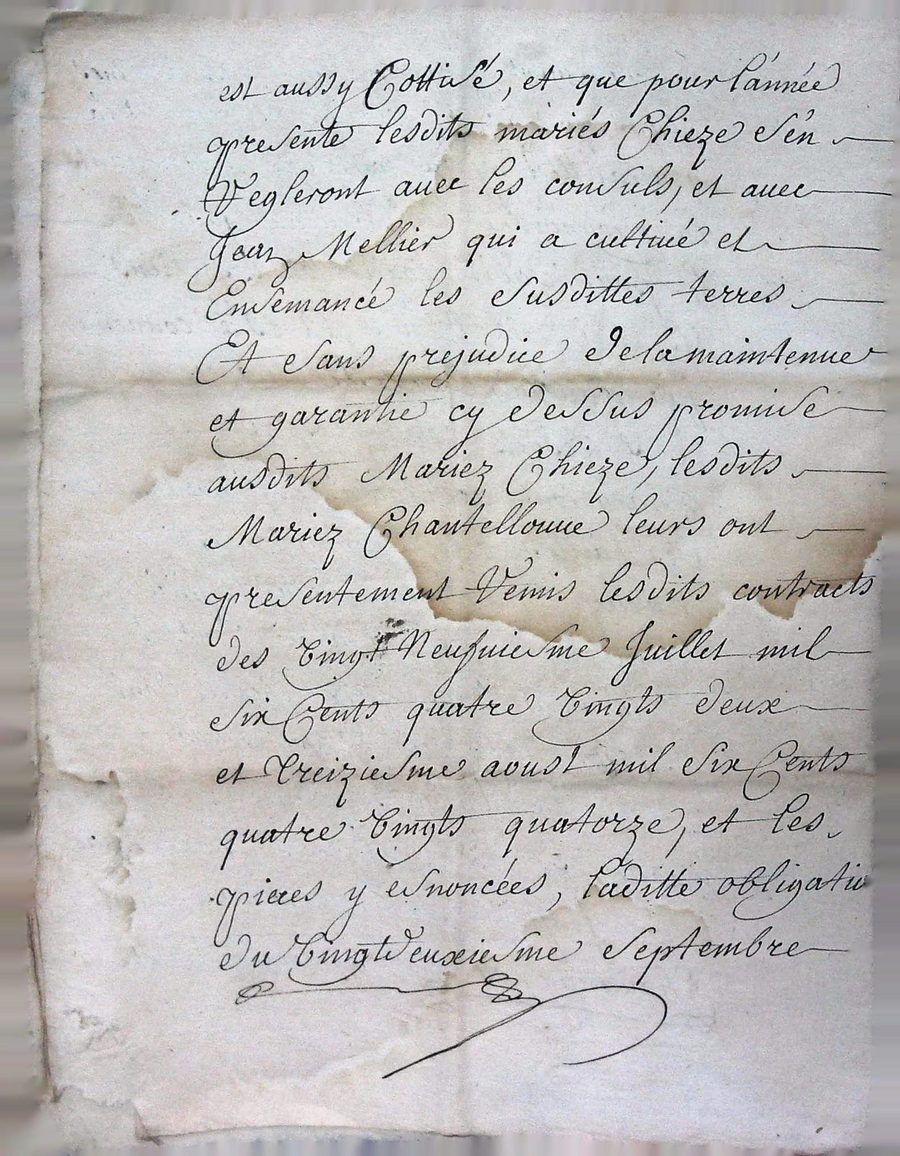 est aussy Cottisé, et que pour l'année
presente lesdits mariés Chieze s'en
Regleront auec les consuls, et auec
Jean Mellier qui a cultiué et
Ensemancé les susdittes terres
Et sans prejudice de la maintenue
et garantie cy dessus promise
ausdits Mariez Chieze, lesdits
Mariez Chantellouue leurs ont
presentement Remis lesdits contracts
des Vingt Neufuiesme Juillet mil
six Cents quatre Vingts deux
et Treiziesme aoust mil six Cents
quatre Vingts quatorze, et les
pieces y esnoncées, laditte obligatio
du Vingt deuxiesme Septembre